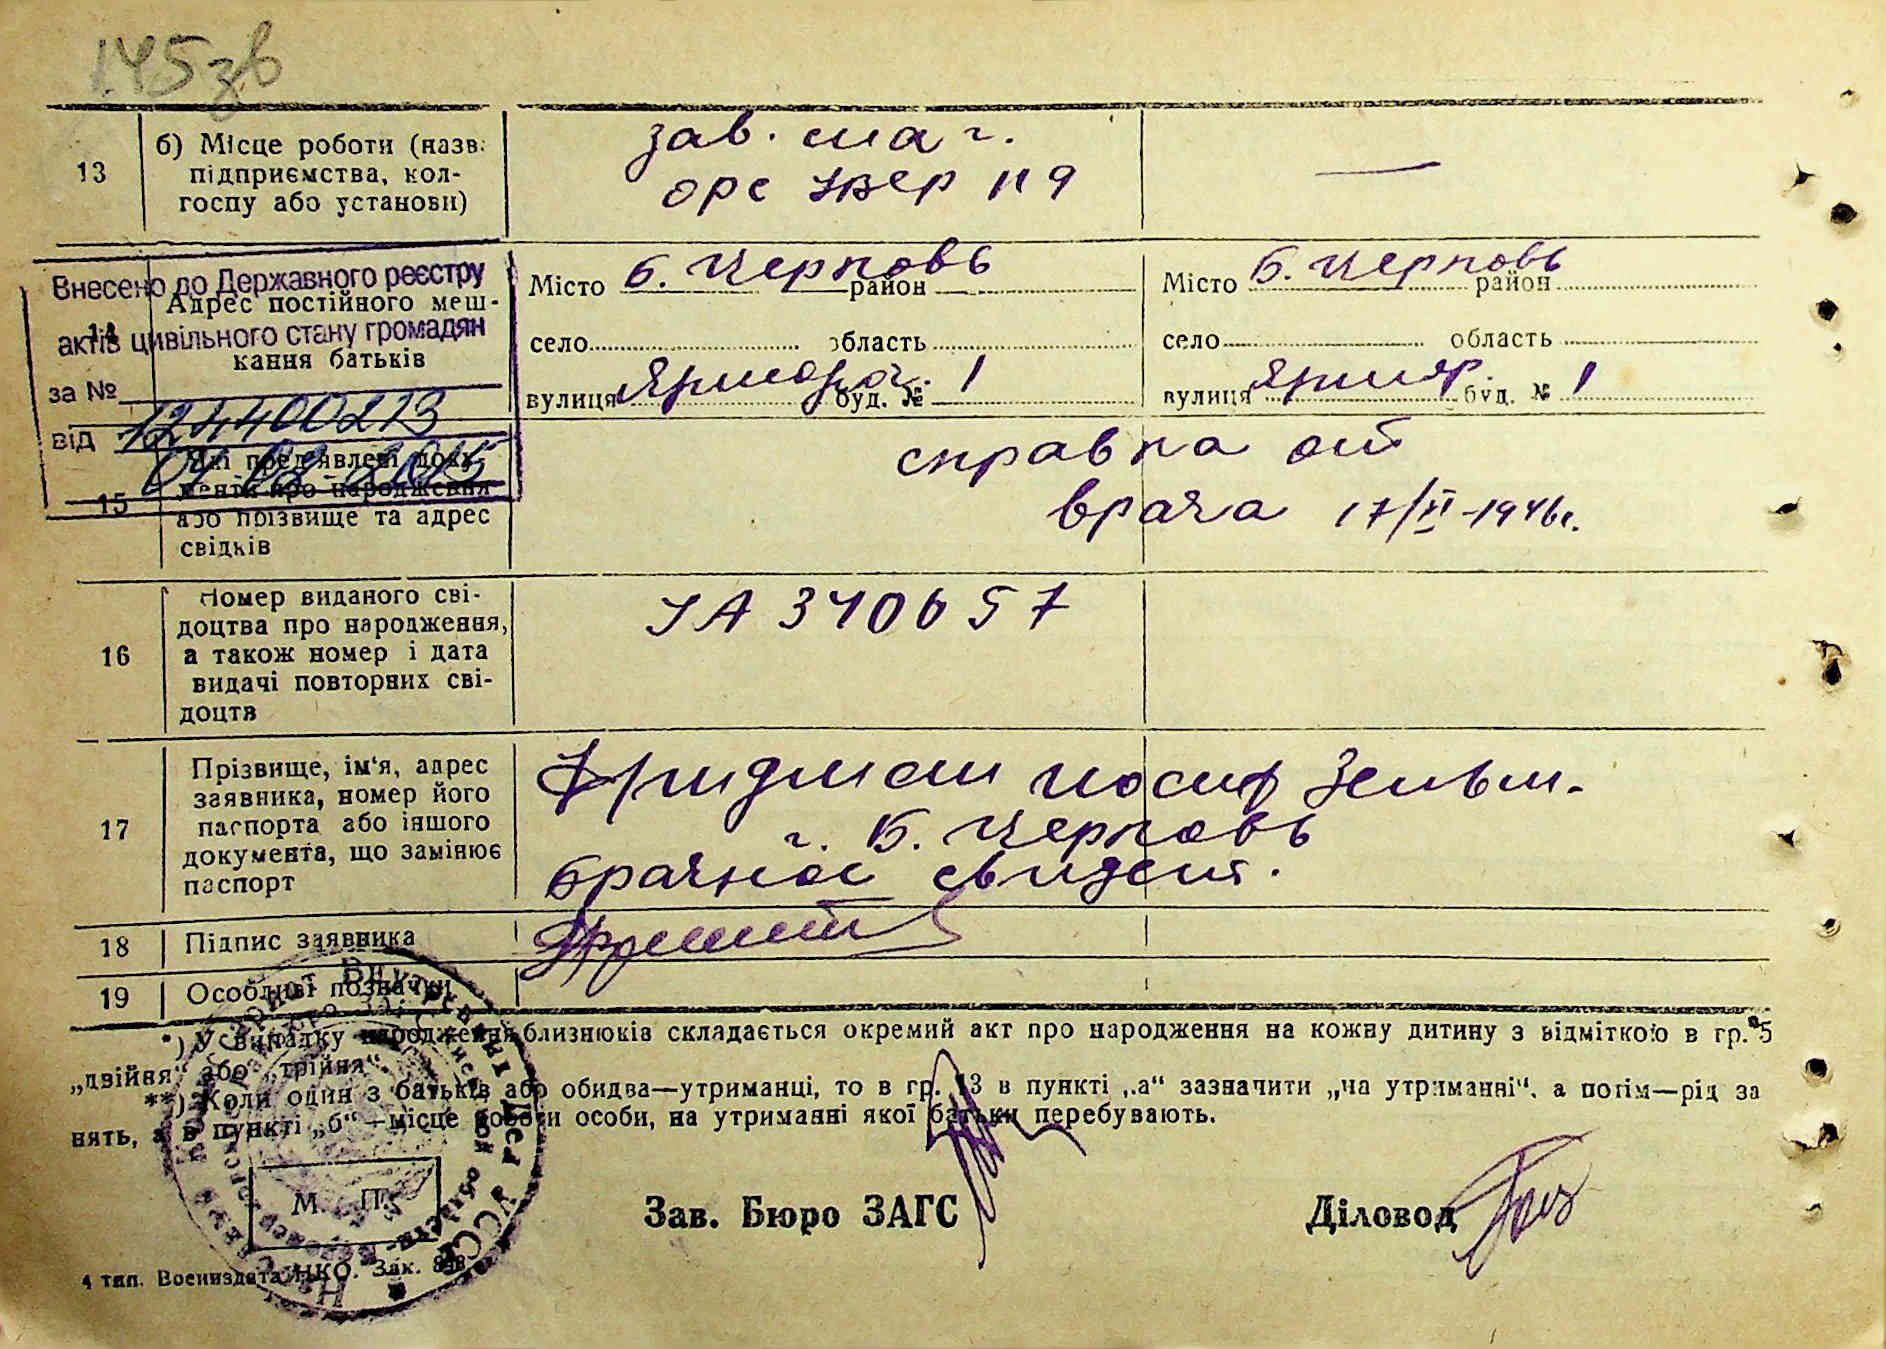 145 зв
13
б) Місце роботи (назв.
підприємства, кол-
госпу або установи)
зав. маг.
орс
—
Внесено до Державного реєстру
актів цивільного стану громадян
за № 124400273
від 04.02.2015
14
Адрес постійного меш-
кання батьків
Місто Б. Церковь район
село область
вулиця Ярмороч. буд. № 1
Місто Б. Церковь район
село область
вулиця Ярмар. буд. № 1
15
Які пред'явлені доку-
менти про народження
або прізвище та адрес
свідків
справка от
врача 17/XI-1946г.
16
Номер виданого сві-
доцтва про народження,
а також номер і дата
видачі повторних сві-
доцтв
УА 340657
17
Прізвище, ім'я, адрес
заявника, номер його
паспорта або іншого
документа, що замінює
паспорт
Фридман Иосиф Зельм.
г. Б. Церковь
брачное свидет.
18
Підпис заявника
19
Особливі позначки
*) У випадку народження близнюків складається окремий акт про народження на кожну дитину з відміткою в гр. 5
„двійня“ або „трійня“.
**) Коли один з батьків або обидва—утриманці, то в гр. 13 в пункті „а“ зазначити „на утриманні“, а потім—рід за
нять, а в пункті „б“—місце роботи особи, на утриманні якої батьки перебувають.
М. П.
Зав. Бюро ЗАГС
Діловод
4 тип. Воениздата НКО. Зак.